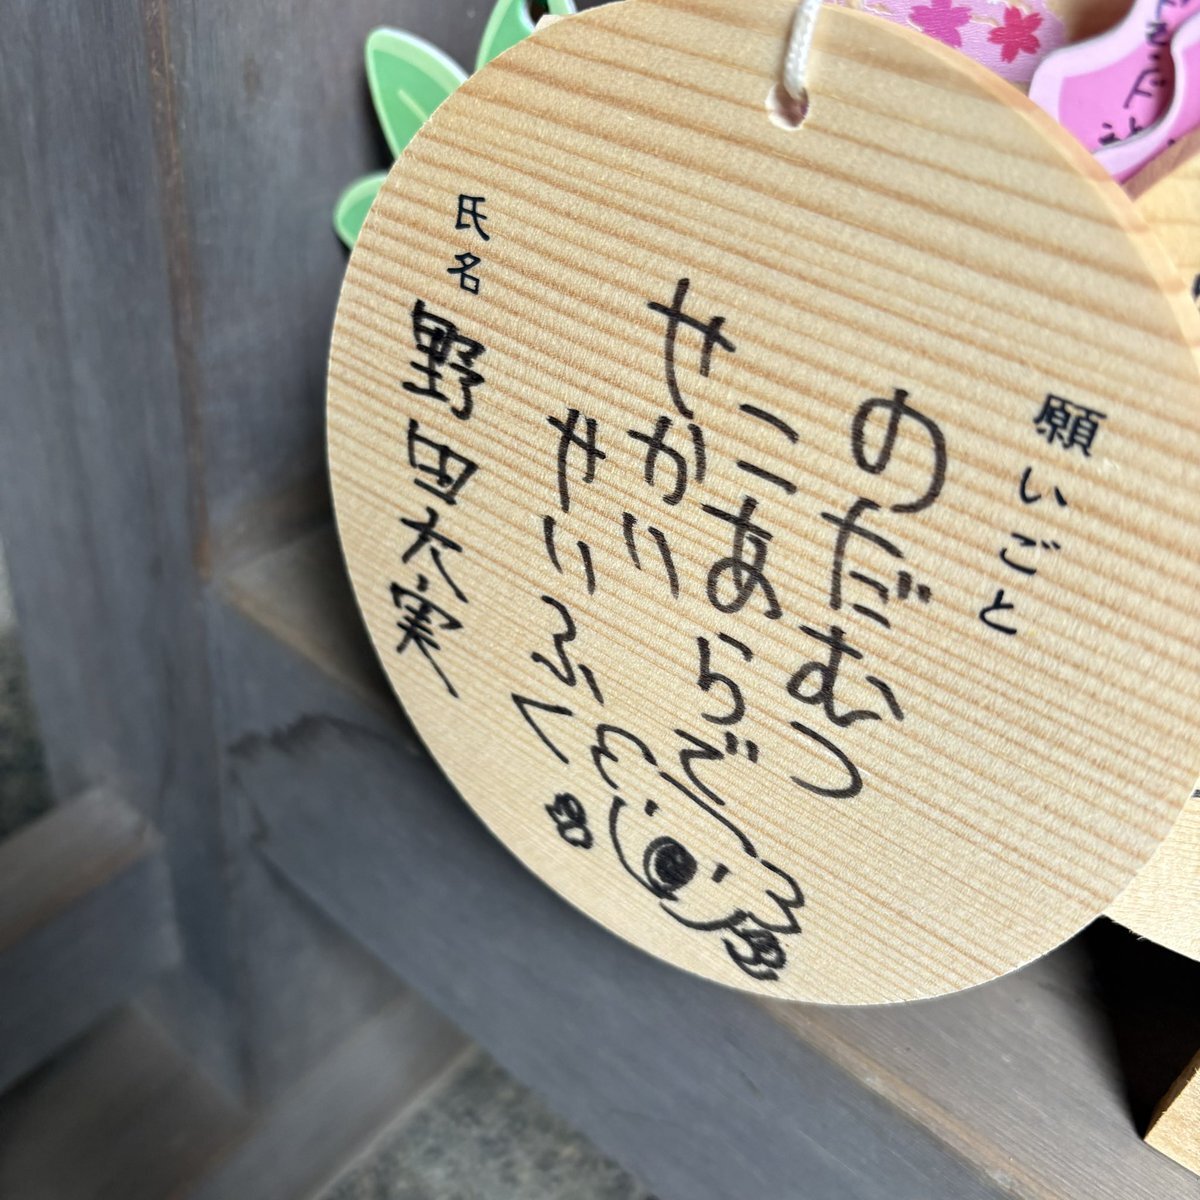 願いごと
のだむつ
こあらで
せかいを
せいふく
氏名
野田六実